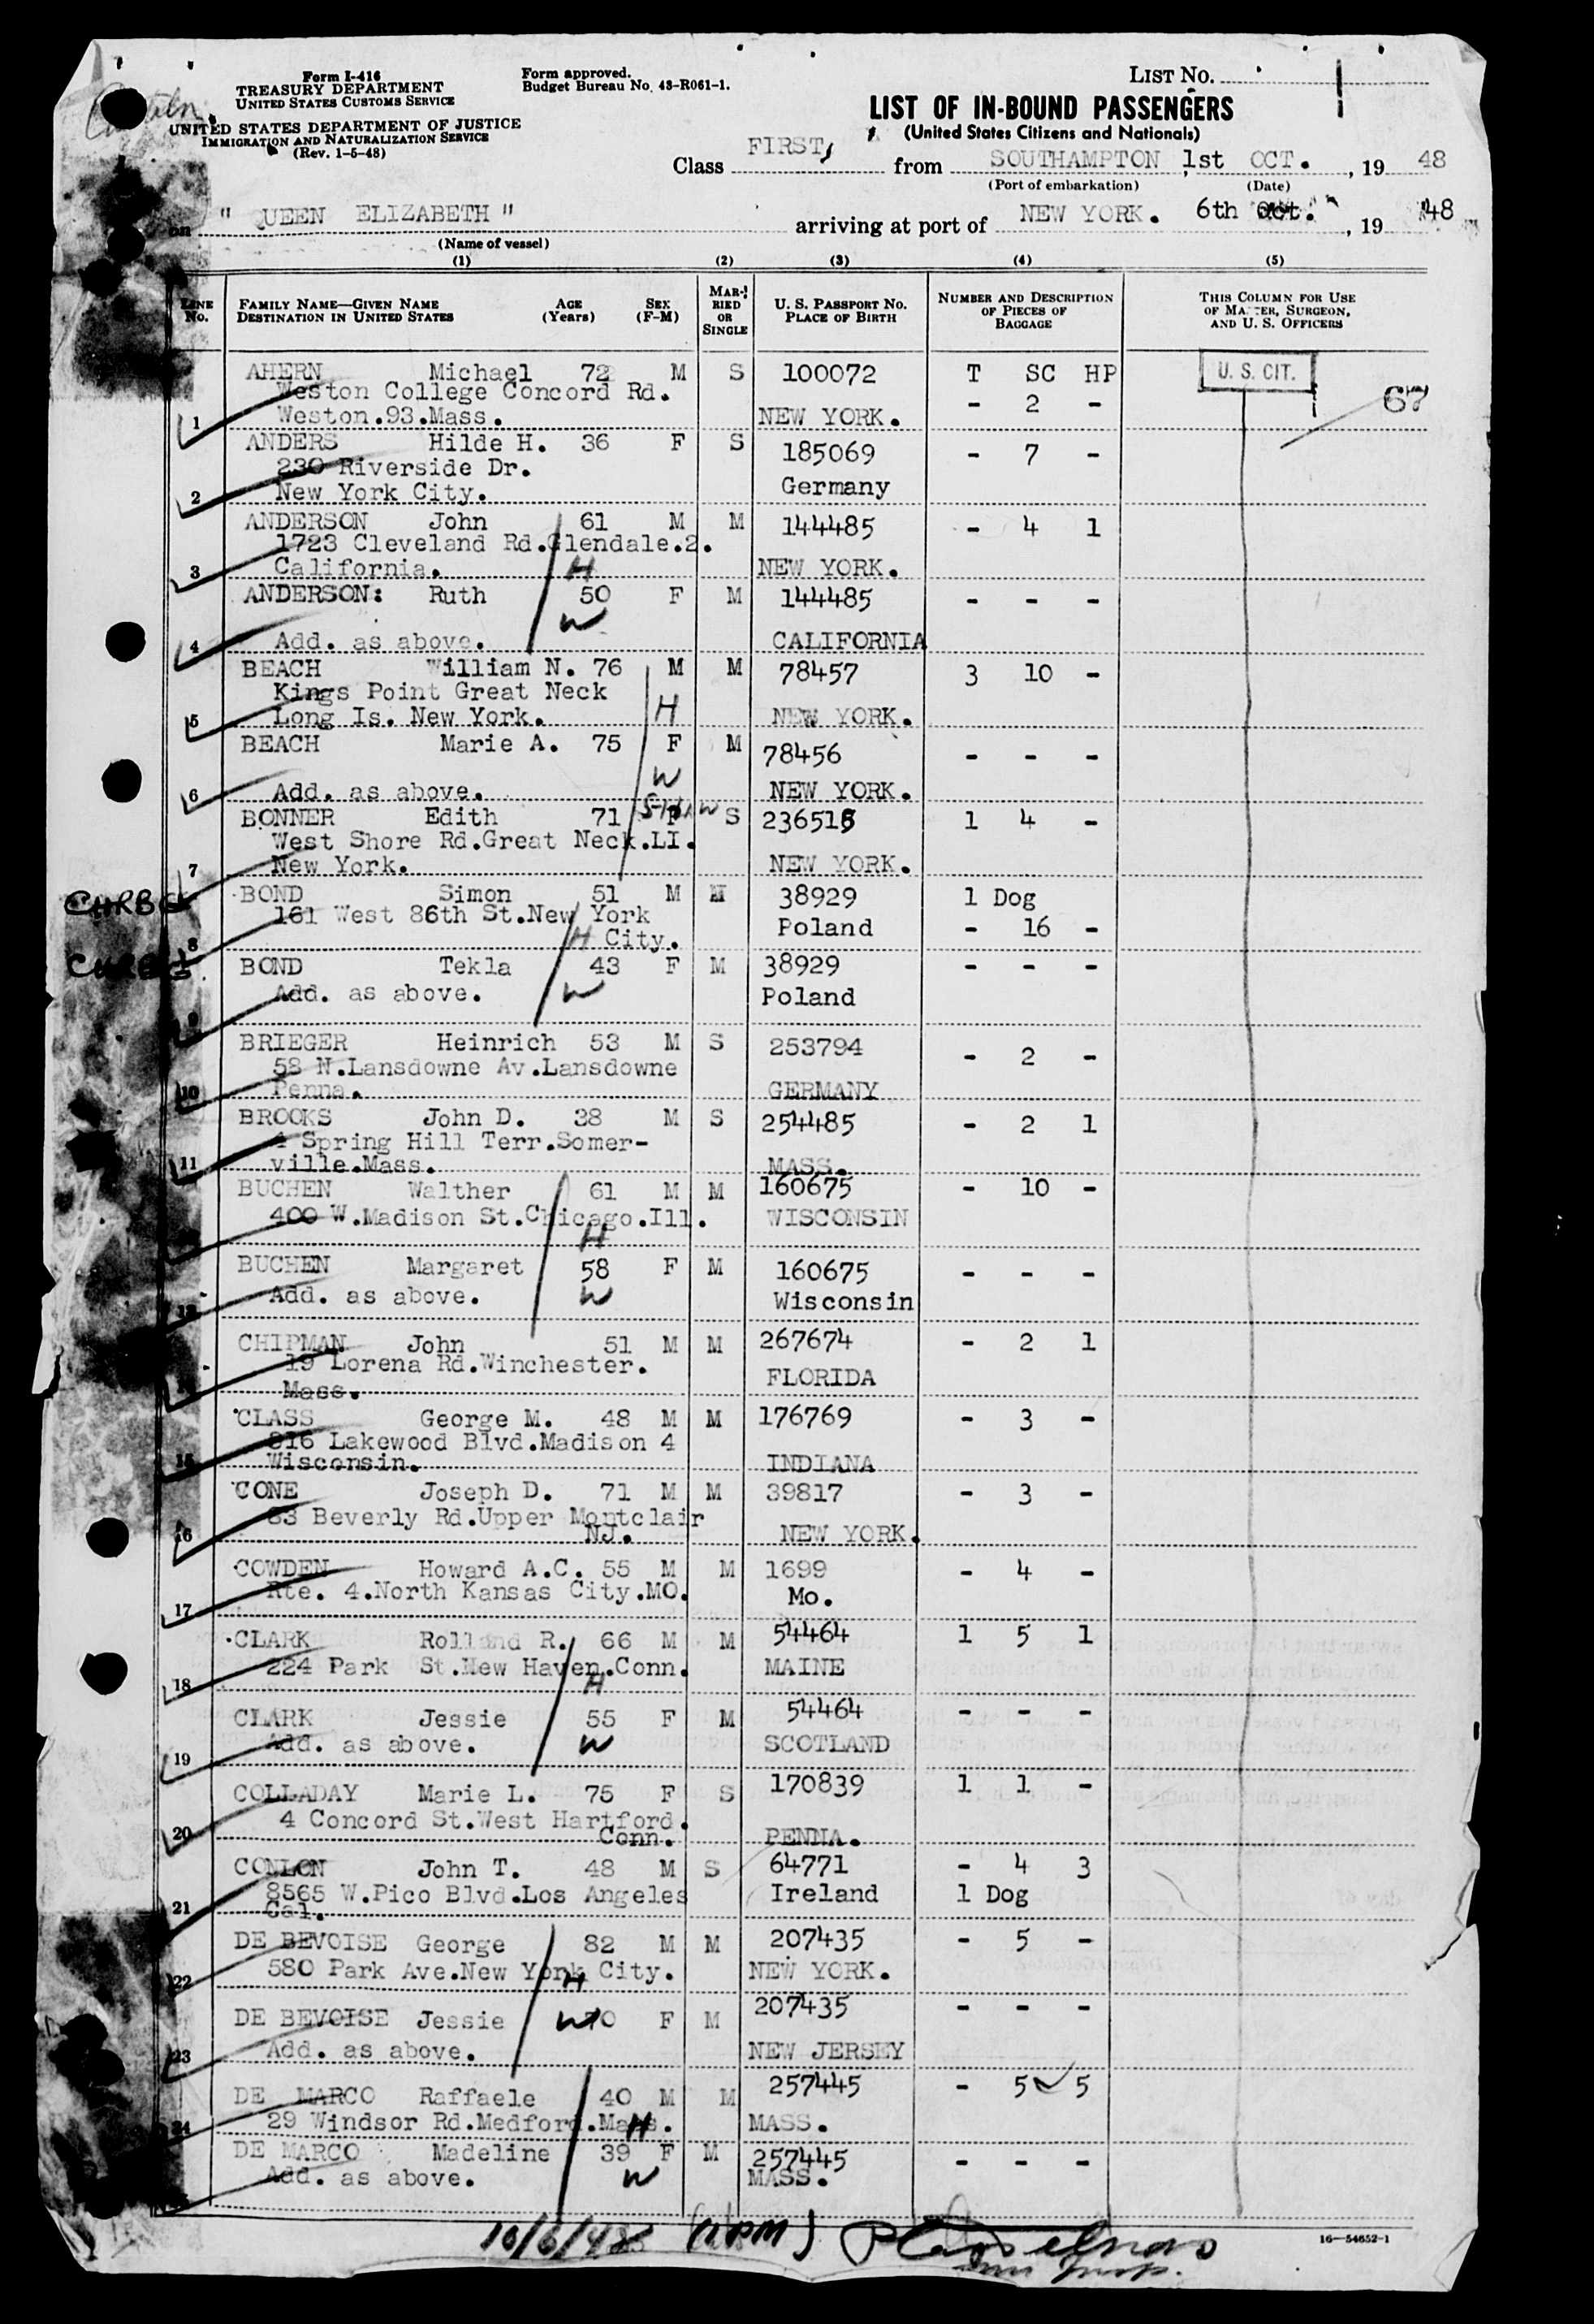 Form I-416
TREASURY DEPARTMENT
UNITED STATES CUSTOMS SERVICE
UNITED STATES DEPARTMENT OF JUSTICE
IMMIGRATION AND NATURALIZATION SERVICE
(Rev. 1-5-48)
Form approved.
Budget Bureau No. 43-R061-1.
LIST NO. 1
LIST OF IN-BOUND PASSENGERS
(United States Citizens and Nationals)
Class FIRST, from SOUTHAMPTON 1st OCT., 19 48
(Port of embarkation) (Date)
on " QUEEN ELIZABETH " arriving at port of NEW YORK. 6th Oct., 19 48
(Name of vessel)
(1) (2) (3) (4) (5)
LINE NO.
FAMILY NAME—GIVEN NAME AGE SEX
DESTINATION IN UNITED STATES (Years) (F-M)
MARRIED OR SINGLE
U. S. PASSPORT NO.
PLACE OF BIRTH
NUMBER AND DESCRIPTION
OF PIECES OF
BAGGAGE
THIS COLUMN FOR USE
OF MASTER, SURGEON,
AND U. S. OFFICERS
AHERN Michael 72 M S 100072 T SC HP U. S. CIT.
Weston College Concord Rd. - 2 - 67
1 Weston.93.Mass. NEW YORK.
ANDERS Hilde H. 36 F S 185069 - 7 -
230 Riverside Dr.
2 New York City. Germany
ANDERSON John 61 M M 144485 - 4 1
1723 Cleveland Rd.Glendale.2.
3 California. H NEW YORK.
ANDERSON: Ruth 50 F M 144485 - - -
W
4 Add. as above. CALIFORNIA
BEACH William N. 76 M M 78457 3 10 -
Kings Point Great Neck
5 Long Is. New York. H NEW YORK.
BEACH Marie A. 75 F M 78456 - - -
W
6 Add. as above. NEW YORK.
BONNER Edith 71 F S 236515 1 4 -
West Shore Rd.Great Neck.LI.
7 New York. NEW YORK.
BOND Simon 51 M M 38929 1 Dog
161 West 86th St.New York Poland - 16 -
8 H City.
BOND Tekla 43 F M 38929 - - -
9 Add. as above. W Poland
BRIEGER Heinrich 53 M S 253794 - 2 -
58 N.Lansdowne Av.Lansdowne
10 Penna. GERMANY
BROOKS John D. 38 M S 254485 - 2 1
4 Spring Hill Terr.Somer-
11 ville.Mass. MASS.
BUCHEN Walther 61 M M 160675 - 10 -
400 W.Madison St.Chicago.Ill. WISCONSIN
H
BUCHEN Margaret 58 F M 160675 - - -
13 Add. as above. W Wisconsin
CHIPMAN John 51 M M 267674 - 2 1
19 Lorena Rd.Winchester. FLORIDA
Mass.
CLASS George M. 48 M M 176769 - 3 -
816 Lakewood Blvd.Madison 4
15 Wisconsin. INDIANA
CONE Joseph D. 71 M M 39817 - 3 -
83 Beverly Rd.Upper Montclair
16 NJ. NEW YORK.
COWDEN Howard A.C. 55 M M 1699 - 4 -
17 Rte. 4.North Kansas City.MO. Mo.
CLARK Rolland R. 66 M M 54464 1 5 1
18 224 Park St.New Haven.Conn. MAINE
H
CLARK Jessie 55 F M 54464 - - -
19 Add. as above. W SCOTLAND
COLLADAY Marie L. 75 F S 170839 1 1 -
4 Concord St.West Hartford.
20 Conn. PENNA.
CONLON John T. 48 M S 64771 - 4 3
8565 W.Pico Blvd.Los Angeles Ireland 1 Dog
21 Cal.
DE BEVOISE George 82 M M 207435 - 5 -
22 580 Park Ave.New York City. NEW YORK.
H
DE BEVOISE Jessie W 70 F M 207435 - - -
23 Add. as above. NEW JERSEY
DE MARCO Raffaele 40 M M 257445 - 5 5
24 29 Windsor Rd.Medford.Mass. MASS.
H
DE MARCO Madeline 39 F M 257445 - - -
Add. as above. W MASS.
10/6/48
16—54652-1